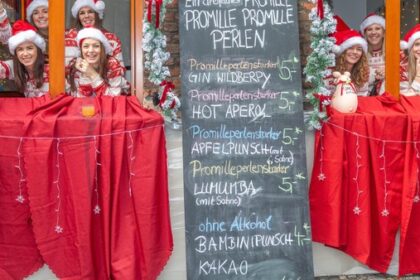 PROMILLE
PROMILLE PROMILLE
PERLEN
Promilleperlenstarker
GIN WILDBERRY 5,-
Promilleperlenstarker
HOT APEROL 5,-
Promilleperlenstarker
APFELPUNSCH (mit Sahne) 5,-
Promilleperlenstarker
LUMUMBA 5,-
(mit Sahne)
ohne Alkohol
BAMBINIPUNSCH
KAKAO